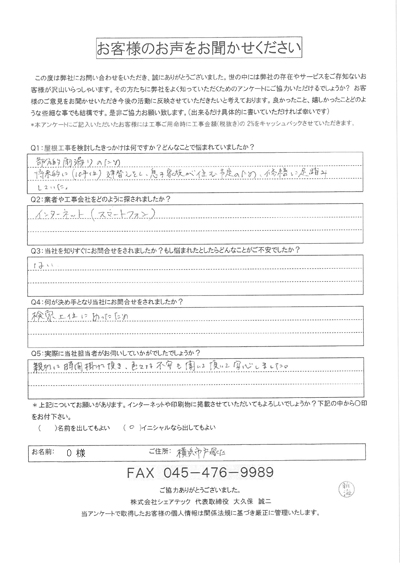 お客様のお声をお聞かせください
この度は弊社にお問い合わせをいただき、誠にありがとうございました。世の中には弊社の存在やサービスをご存知ないお
客様が沢山いらっしゃいます。その方たちに弊社をよく知っていただくためのアンケートにご協力いただけるでしょうか?お客
様のご意見をお聞かせいただき今後の活動に反映させていただきたいと考えております。良かったこと、嬉しかったことどのよ
うな些細な事でも結構です。是非ご協力お願い致します。(出来るだけ具体的に書いていただければ幸いです)
*本アンケートにご記入いただいたお客様には工事ご用命時に工事金額(税抜き)の2%をキャッシュバックさせていただきます。
Q1:屋根工事を検討したきっかけは何ですか?どんなことで悩まれていましたか?
部分的雨漏りのため
将来的に(10年は)建替えをし、息子家族が住む予定のため、修繕に足踏み
していた。
Q2:業者や工事会社をどのように探されましたか?
インターネット(スマートフォン)
Q3:当社を知りすぐにお問合せをされましたか?もし悩まれたとしたらどんなことがご不安でしたか?
はい
Q4:何が決め手となり当社にお問合せをされましたか?
検索上位にあったため
Q5:実際に当社担当者がお伺いしていかがでしたでしょうか?
*上記についてお願いがあります。インターネットや印刷物に掲載させていただいてもよろしいでしょうか?下記の中から〇印
をお付下さい。
( )名前を出してもよい ( O )イニシャルなら出してもよい
お名前: O 様 ご住所: 横浜市戸塚区
FAX 045-476-9989
ご協力ありがとうございました。
株式会社シェアテック 代表取締役 大久保 誠二
当アンケートで取得したお客様の個人情報は関係法規に基づき厳正に管理いたします。